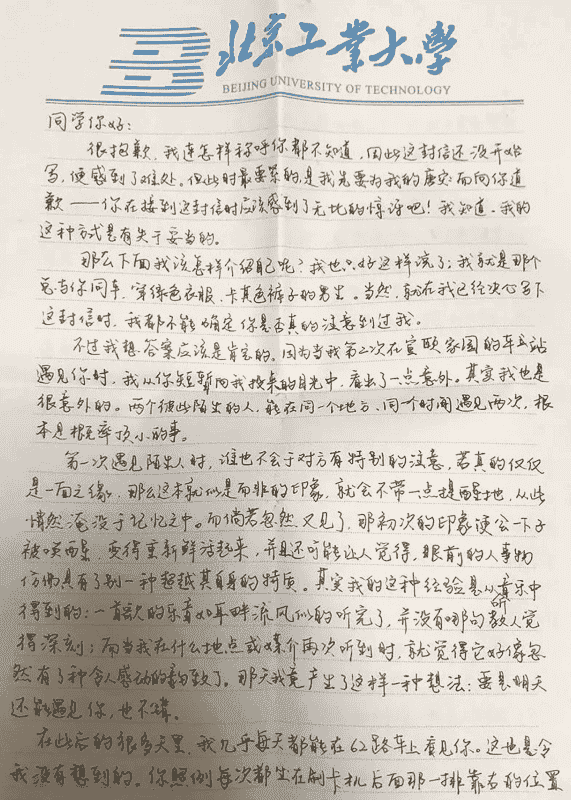 北京工業大學
BEIJING UNIVERSITY OF TECHNOLOGY
同学你好：
很抱歉，我连怎样称呼你都不知道，因此这封信还没开始
写，便感到了难处。但此时最要紧的，是我先要为我的唐突而向你道
歉——你在接到这封信时应该感到了无比的惊讶吧！我知道，我的
这种方式是有失于妥当的。
那么下面我该怎样介绍自己呢？我也只好这样说了：我就是那个
总与你同车，穿绿色衣服、卡其色裤子的男生。当然，就在我已经决心写下
这封信时，我都不能确定你是否真的注意到过我。
不过我想答案应该是肯定的。因为当我第二次在宣颐家园的车站
遇见你时，我从你短暂向我投来的目光中，看出了一点意外。其实我也是
很意外的。两个彼此陌生的人，能在同一个地方、同一个时间遇见两次，根
本是概率顶小的事。
第一次遇见陌生人时，谁也不会于对方有特别的注意，若真的仅仅
是一面之缘，那么这本就似是而非的印象，就会不带一点提醒地，从此
悄然淹没于记忆之中。而倘若忽然又见了，那初次的印象便会一下子
被唤醒，变得重新鲜活起来，并且还可能让人觉得，眼前的人事物
仿佛具有了别一种超越其自身的特质。其实我的这种经验是从听音乐中
得到的：一首歌的乐音如耳畔流风似的听完了，并没有哪句教人觉
得深刻；而当我在什么地点或媒介再次听到时，就觉得它好像忽
然有了种令人感动的韵致了。那天我竟产生了这样一种想法：要是明天
还能遇见你，也不错。
在此后的很多天里，我几乎每天都能在62路车上看见你。这也是令
我没有想到的。你照例每次都坐在刷卡机后面那一排靠右的位置